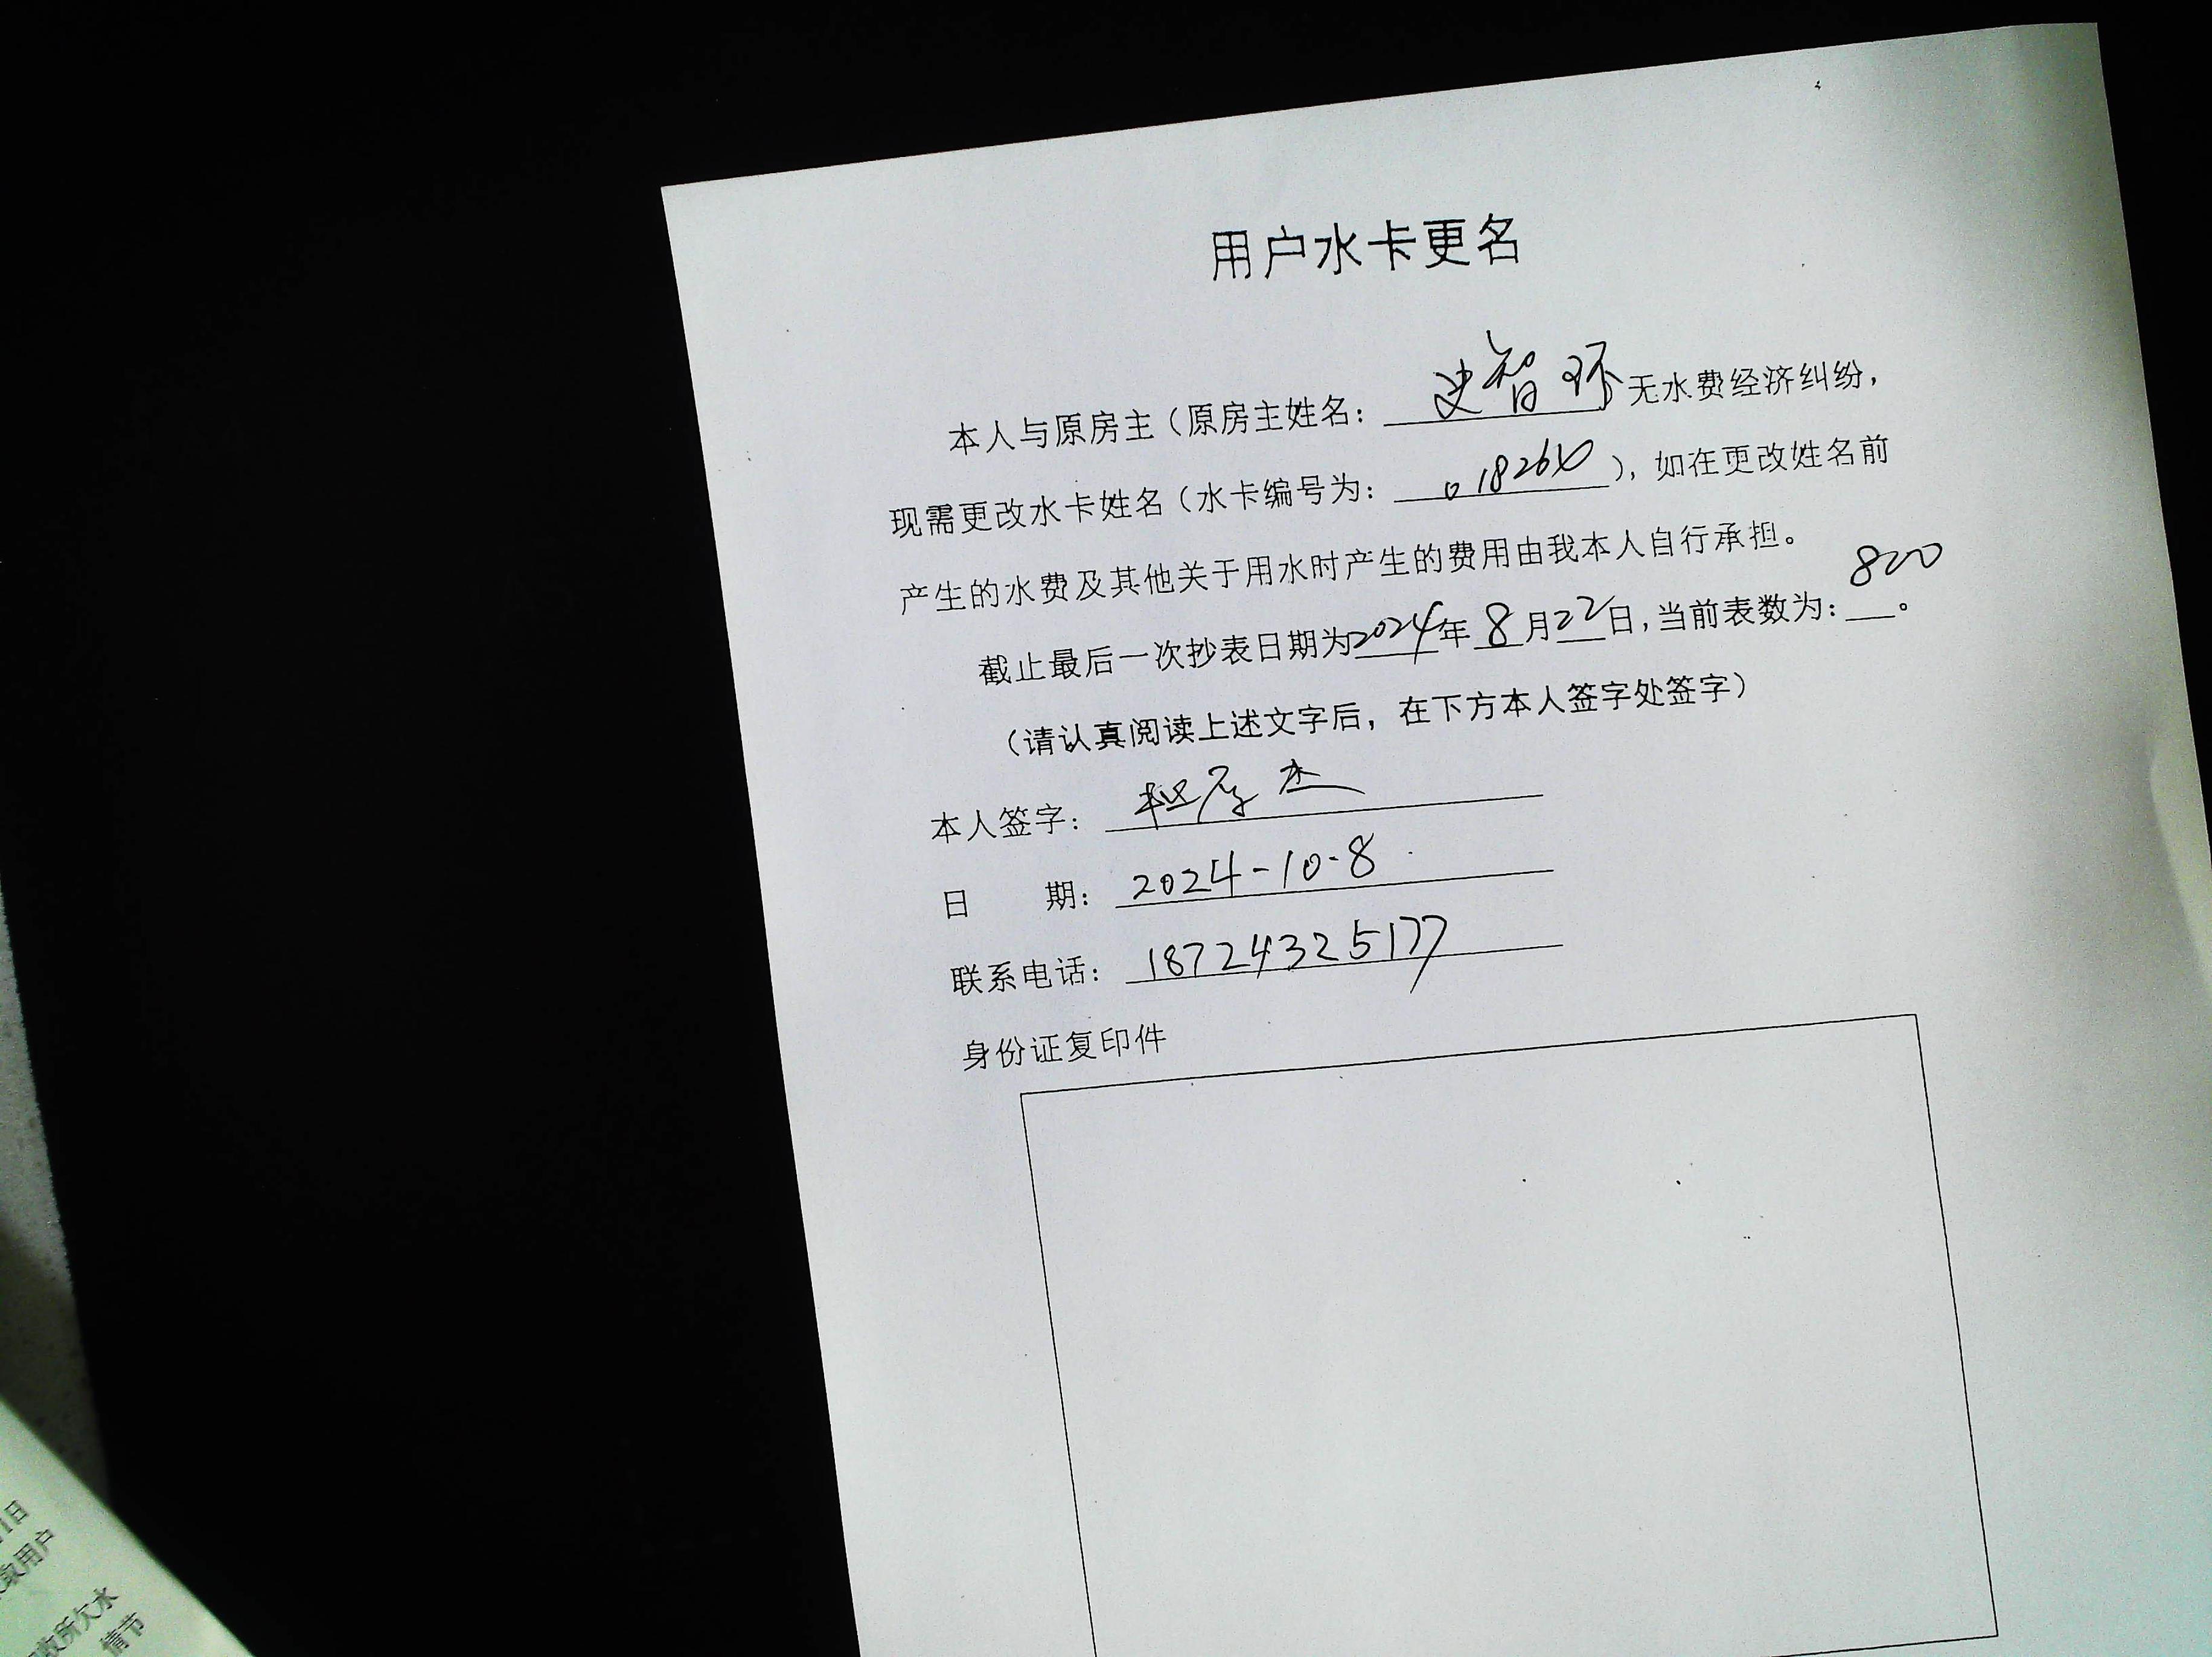 用户水卡更名
本人与原房主（原房主姓名：史智环 无水费经济纠纷，
现需更改水卡姓名（水卡编号为： ），如在更改姓名前
产生的水费及其他关于用水时产生的费用由我本人自行承担。
截止最后一次抄表日期为2024年8月22日,当前表数为：800。
（请认真阅读上述文字后，在下方本人签字处签字）
本人签字： 杰
日 期：2024-10-8
联系电话：18724325177
身份证复印件
1日
取用户
收所欠水
情节